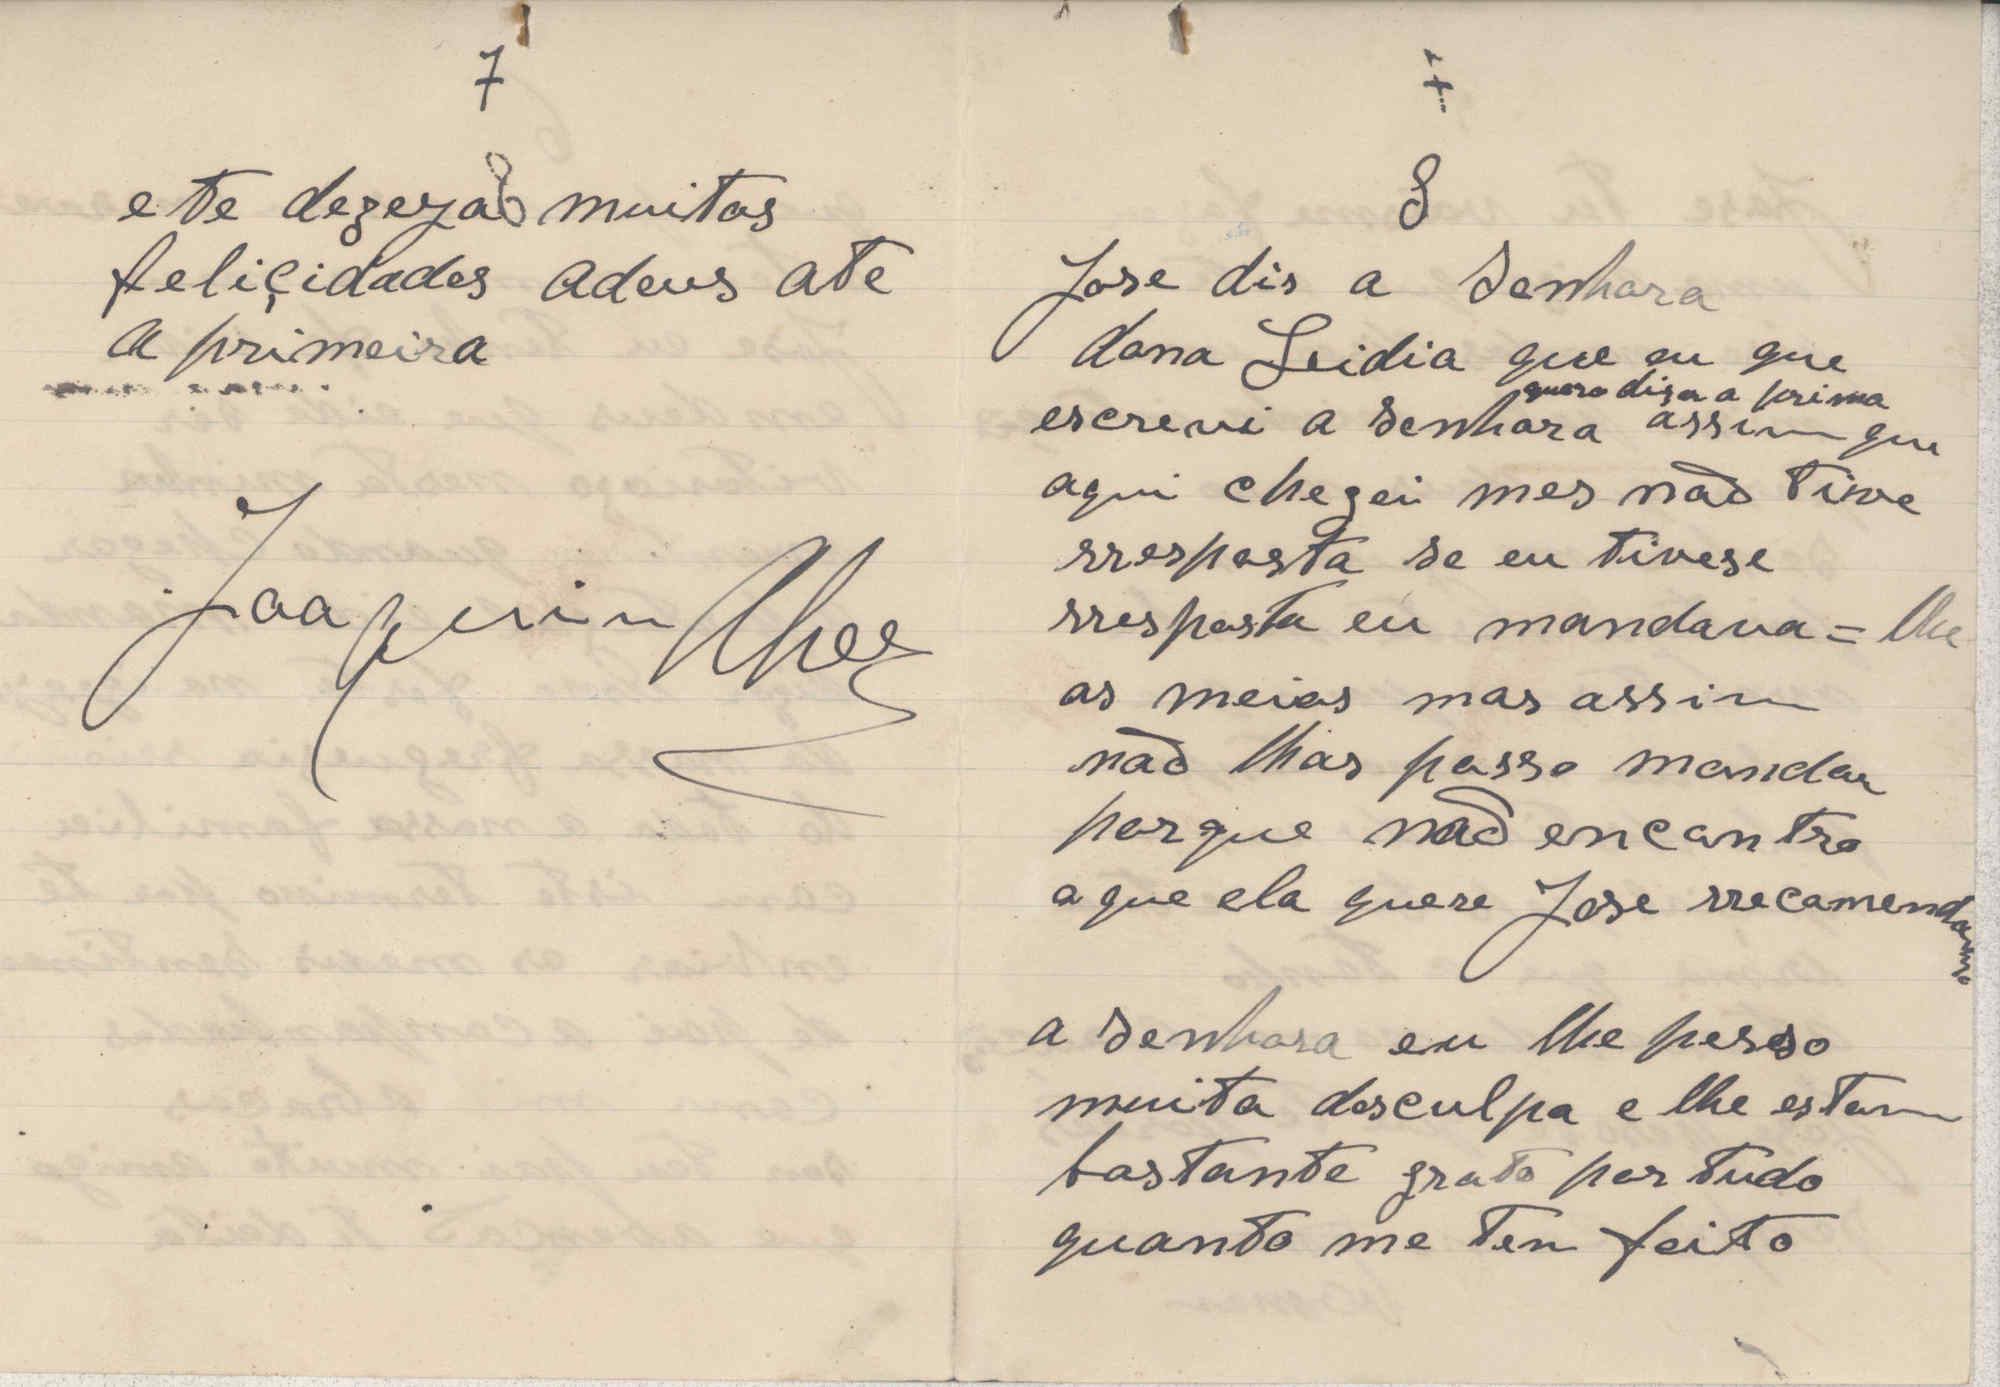 7
e te dezeyao muitas
feliçidades adeus ate
a primeira
Joaquin Alves
8
Jose dis a Senhora
dona Leidia que eu que
quero dizer a prima
escrevi a Senhora assim que
aqui chegei mes não tive
rresposta se eu tivese
rresposta eu mandava = lhe
as meias mas assim
não lhas posso mandar
porque não encontro
o que ela quere Jose rrecomenda
a Senhora eu lhe pesso
muita desculpa e lhe estou
bastante grato por tudo
quanto me ten feito